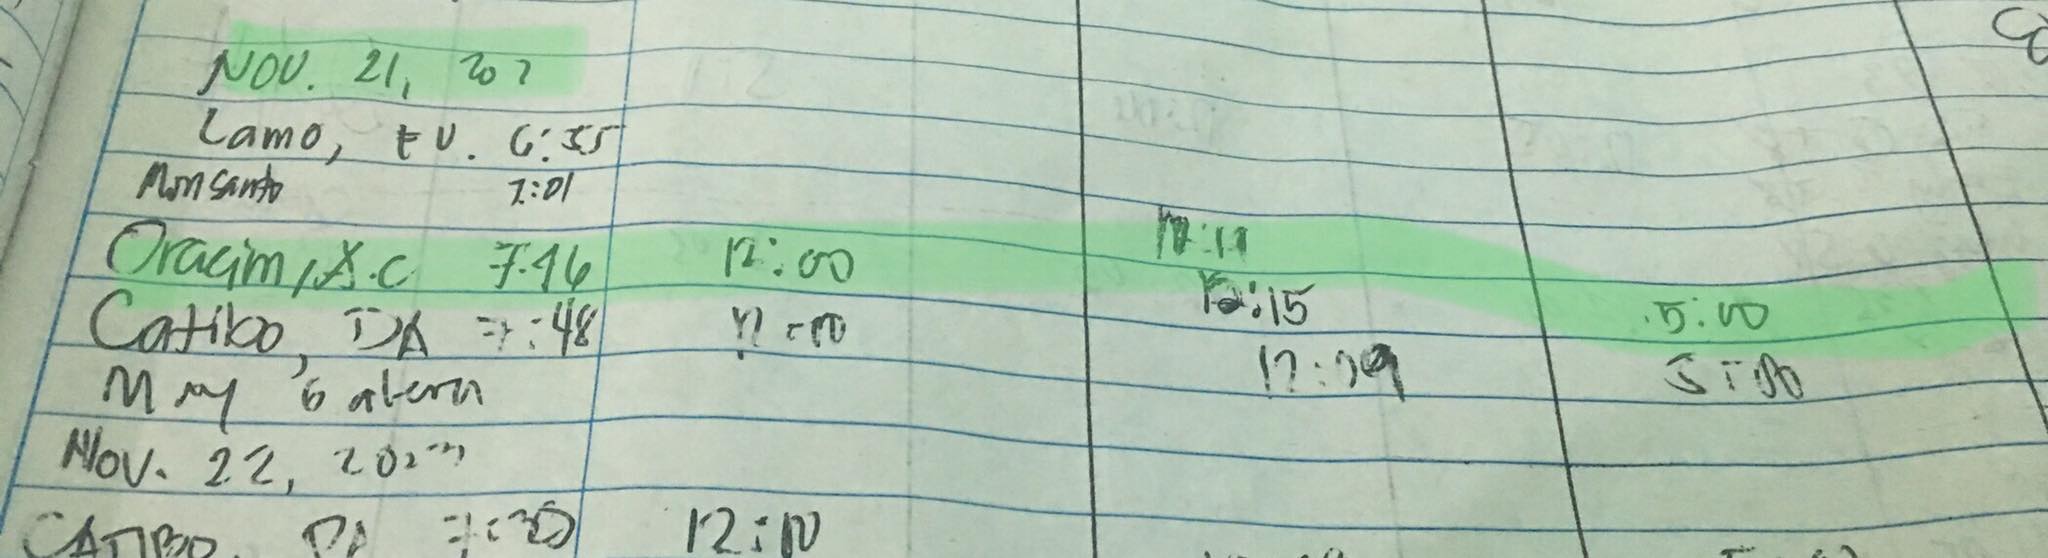 NOV. 21, 202
Lamo, EV. 6:55
Monsanto 7:01
12:11
Oracim, A.C 7:46 12:00
12:15
Catibo, DA 7:48 12:00 5:00
12:09 5:00
Nov. 22, 202
CATIBO, DA 7:30 12:10